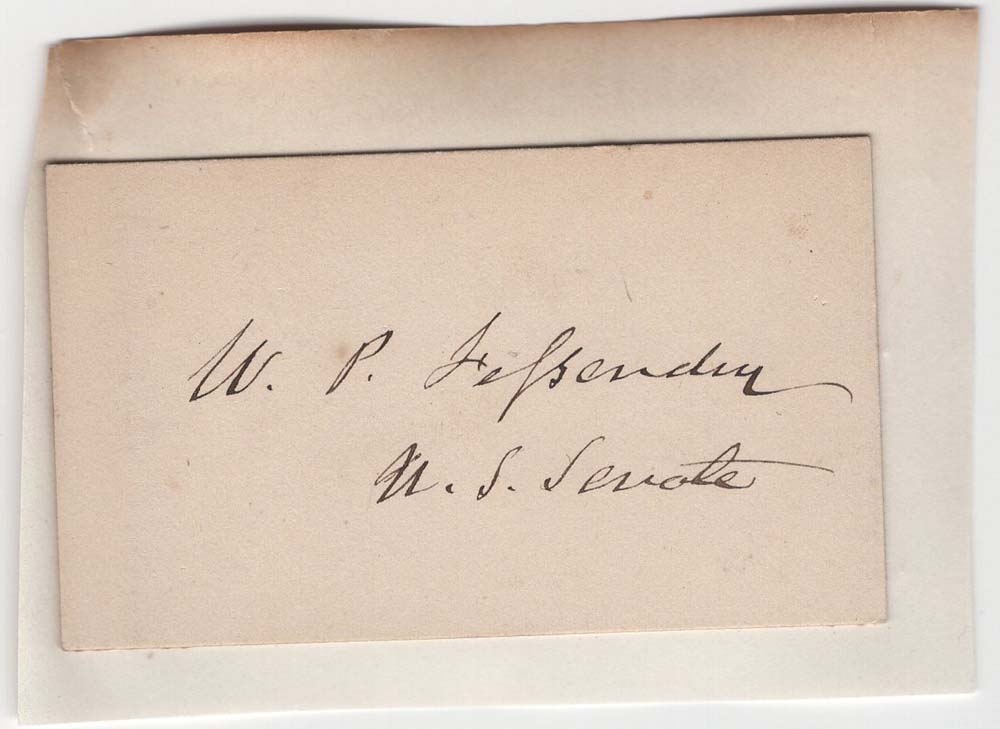 W. P. Fessenden
U. S. Senate